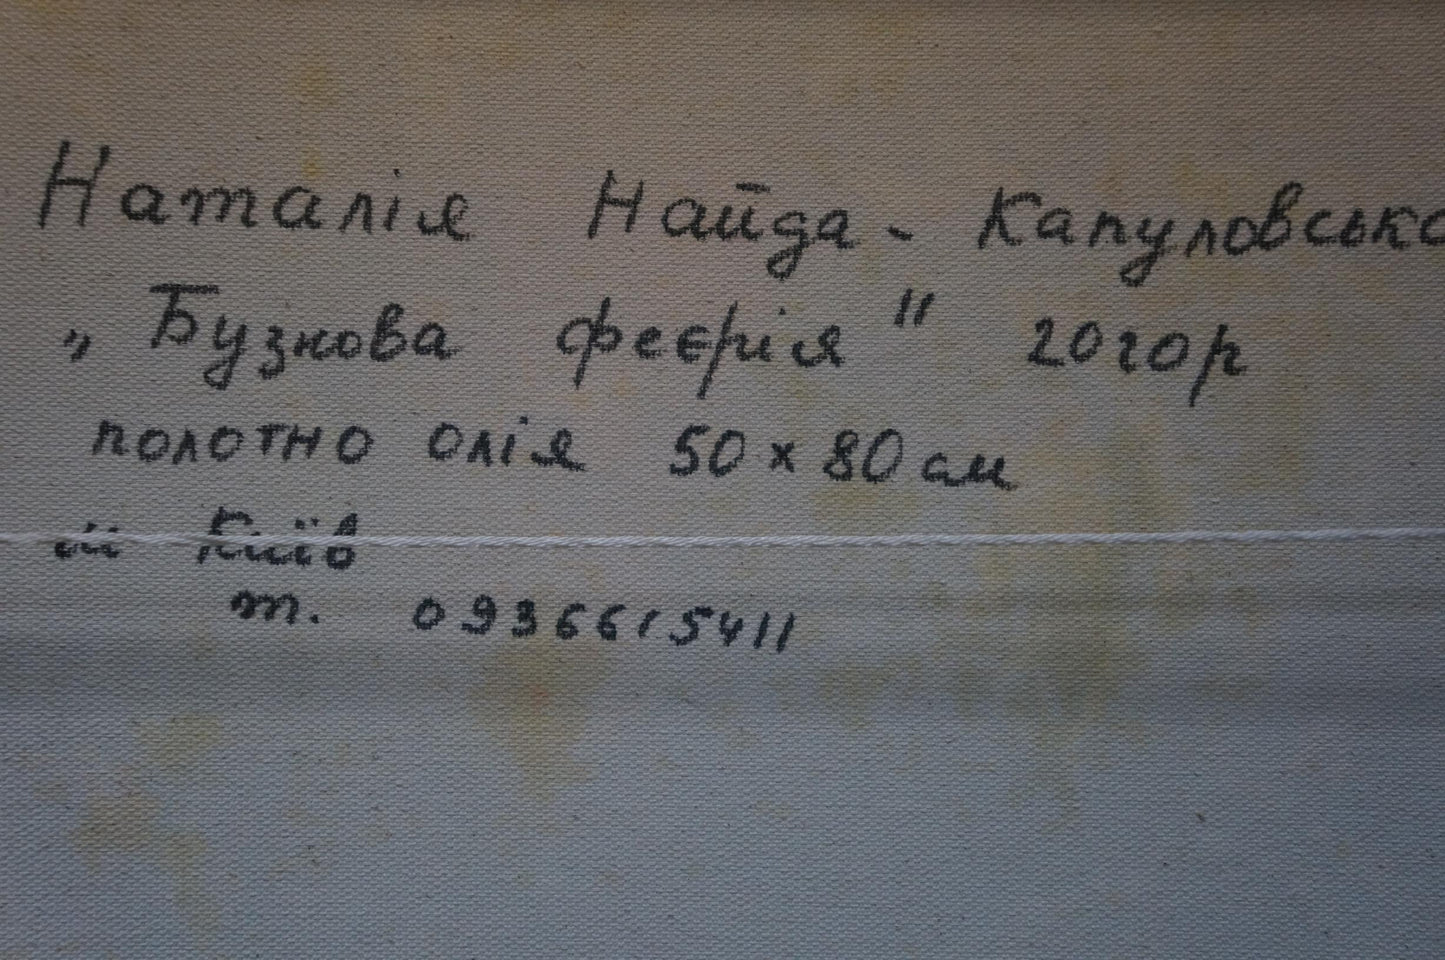 Наталія Найда - Капуловська
„Бузкова феєрія" 2010р
полотно олія 50 х 80 см
м Київ
т. 0936615411